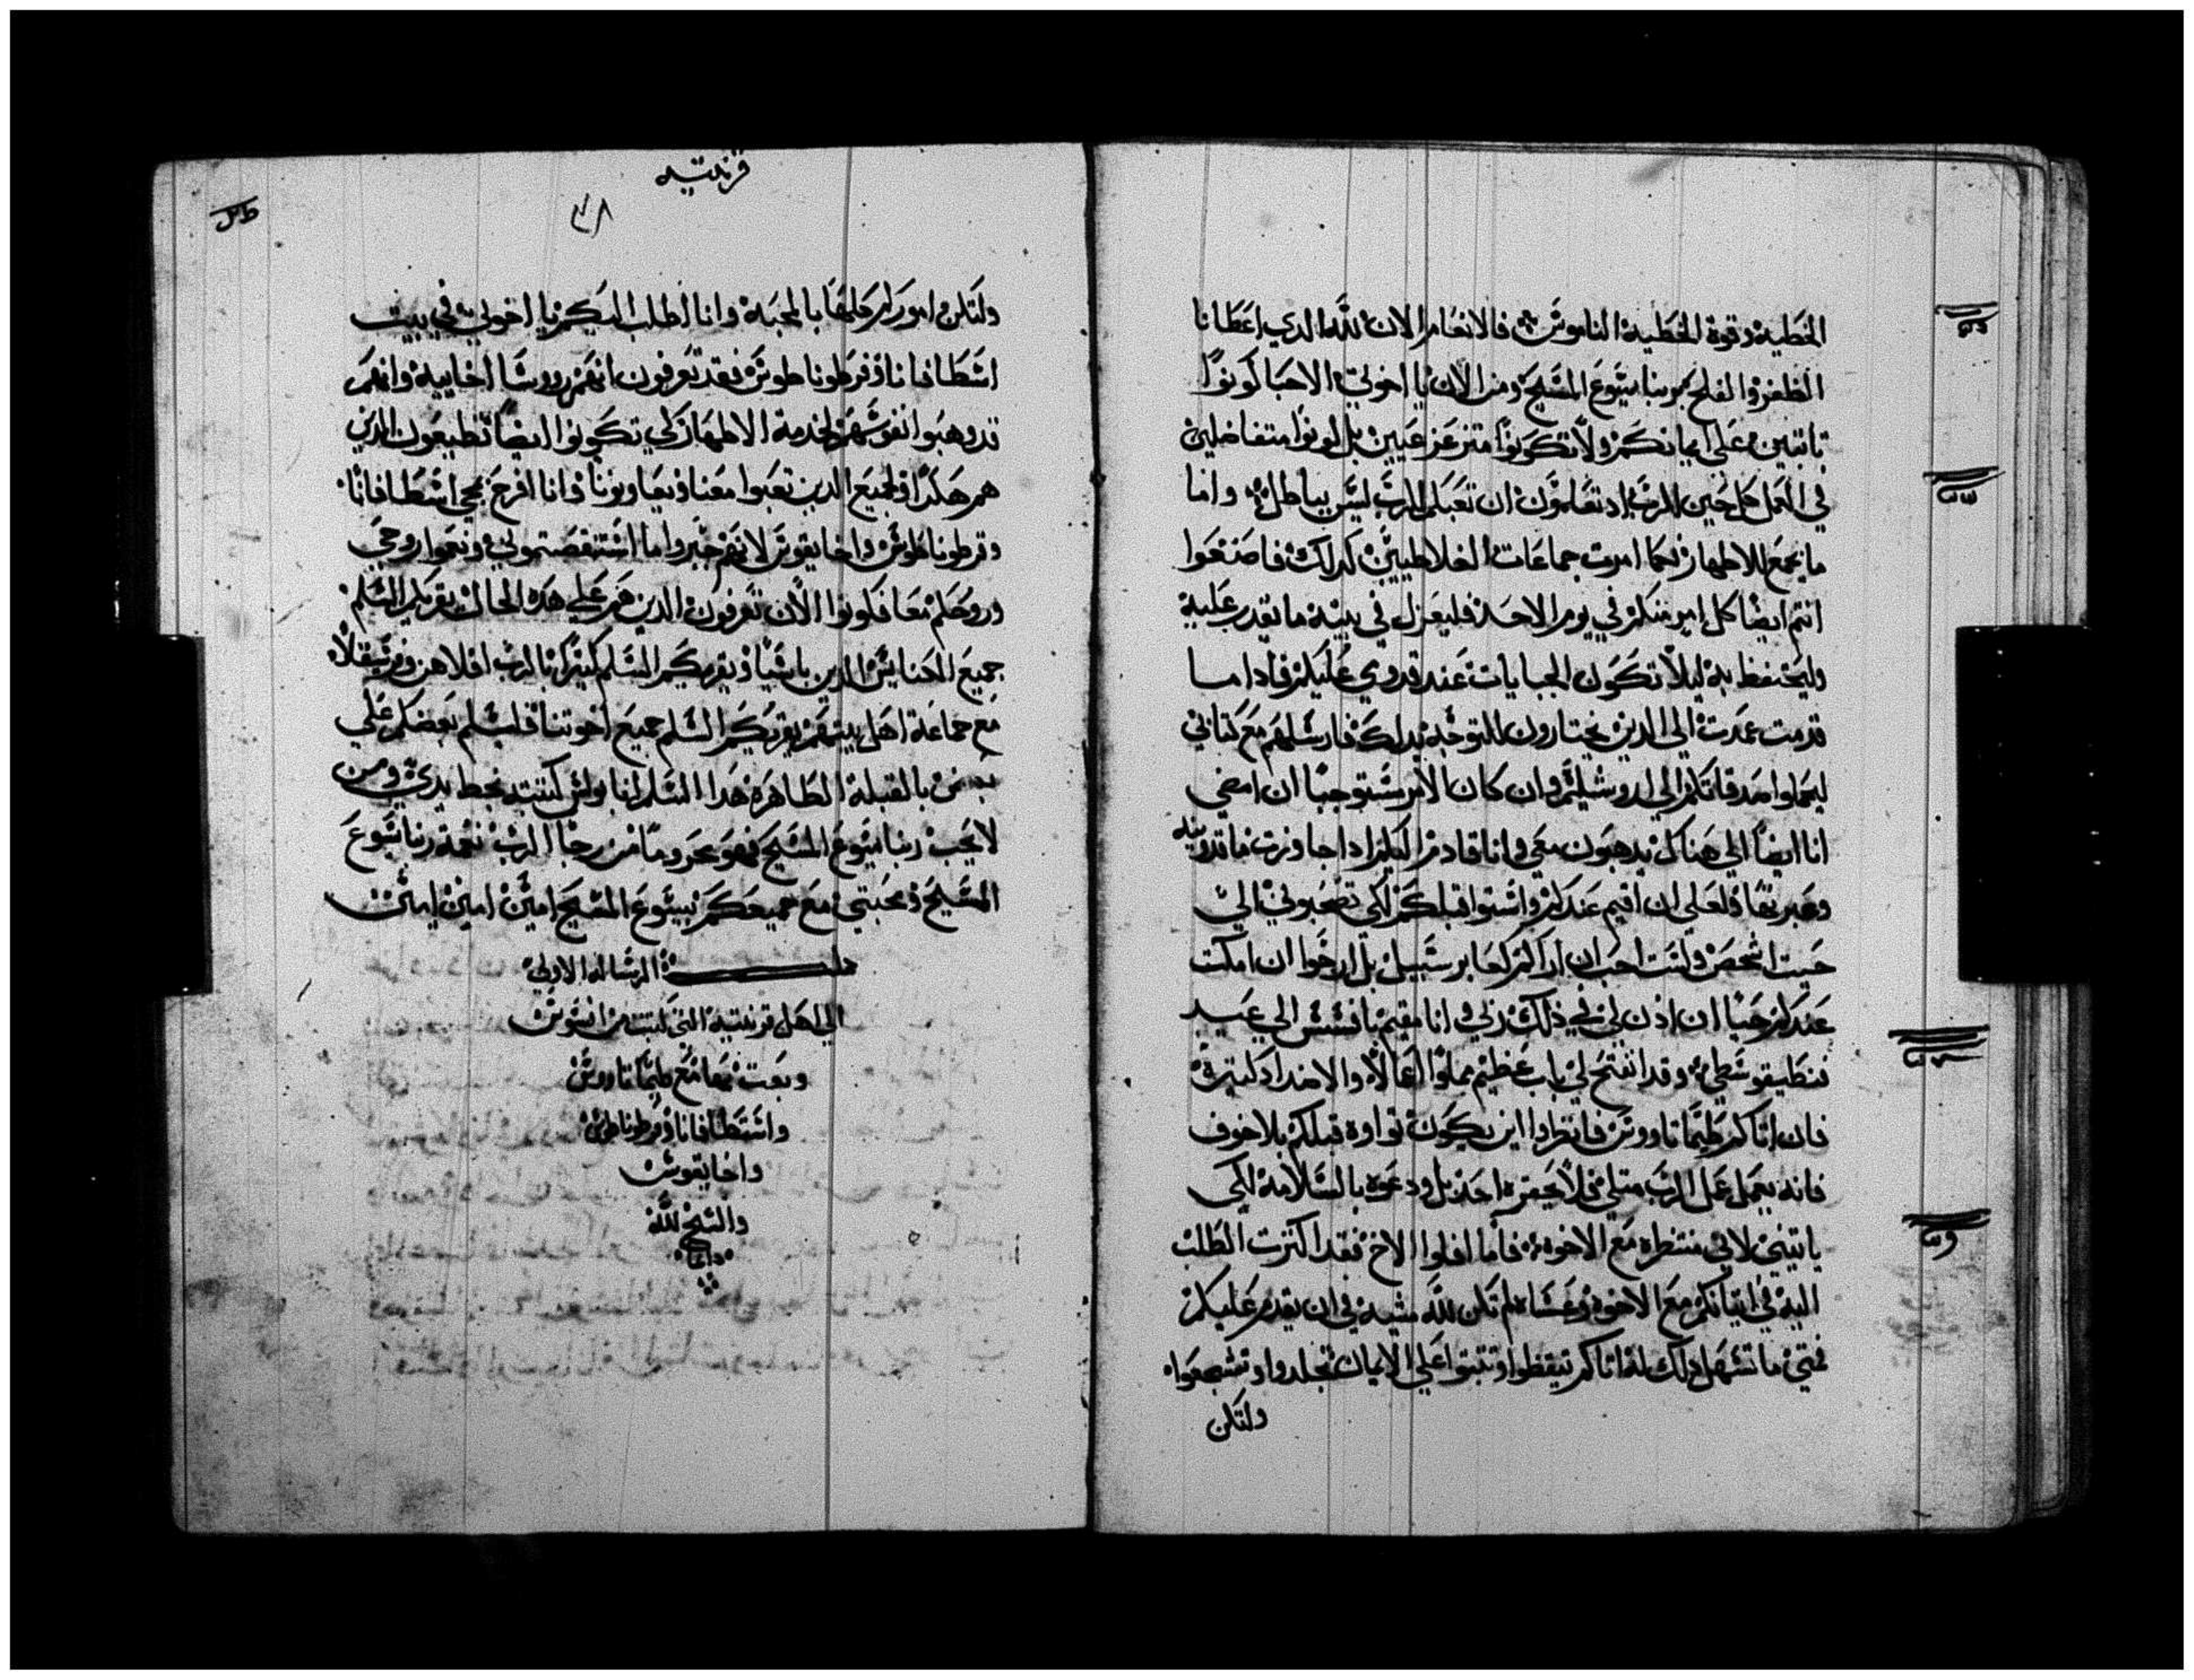 الخطية وقوة الخطية الناموس فالانعام الان لله الدي اعطانا
الظفر والفلح بربنا يسوع المسيح ومن الان يا اخوتي الاحبا كونوا
تابتين علي ايمانكم ولا تكونوا متزعزعيين بل كونوا متفاضلين
في العمل كل حين للرب اد تعلمون ان تعبكم للرب ليس بباطل واما
ما يجمع للاطهار فكما امرت جماعات الغلاطيين كدلك فاصنعوا
انتم ايضا كل امر منكم في يوم الاحد فليعزل في بيته ما يقدر عليه
وليحتفظ به ليلا تكون الجبايات عند قدومي عليكم فادا ما
قدمت عمدت الي الدين تختارون للتوجه بدلك فارسلهم مع كتابي
ليحملوا صدقاتكم الي اورشليم وان كان الامر مستوجبا ان امضي
انا ايضا الي هناك يدهبون معي وانا قادم اليكم ادا جاوزت ماقدونيه
وعبرتها ولعلي ان اقيم عندكم واشتوا قبلكم لكي تصحبوني الي
حيت اشخص ولست احب ان اراكم كعابر سبيل بل ارجوا ان امكت
عندكم حينا ان ادن لي في ذلك ربي وانا مقيم بافسس الي عيد
فنطيقوسطي وقد انفتح لي باب عظيم مملوا اعمالا والاضداد كتيره
فان اتاكم طيماتاووس فانظروا اين يكون تواوه قبلكم بلا خوف
فانه يعمل عمل الرب متلي فلا يحقره احد بل ودعوه بالسلامة لكي
ياتيني لاني منتظره مع الاخوه فاما افلوا الاخ فقد اكترت الطلب
اليه في اتيانكم مع الاخوه وعساه لم تكن لله مشيه في ان يقدم عليكم
فمتي ما تسهل دلك له اتاكم تيقظوا وتبتوا علي الايمان تجلدوا وتشجعوا
ولتكن
قرنتيه
ولتكن اموركم كلها بالمحبة وانا اطلب اليكم يا اخوتي في بيت
اسطافانا وفرطوناطوس فقد تعرفون انهم رووسا اخاييه وانهم
قد وهبوا انفوسهم لخدمة الاطهار كي تكونوا ايضا تطيعون الدين
هم هكدا ولجميع الدين تعبوا معنا ويعاونونا وانا افرح بمجي اسطافانا
وفرطوناطوس واخايقوس لانهم جبروا ما استنقصتموني ونعموا روحي
وروحكم معا فكونوا الان تعرفون الدين هم علي هده الحال يقريكم السلم
جميع الكنايس الدين باسيا ويقريكم السلم كتيرا بالرب اقلاهن وفرسقلا
مع جماعة اهل بيتهم يقريكم السلم جميع اخوتنا فليسلم بعضكم علي
بعض بالقبلة الطاهره هدا السلم انا بولس كتبته بخط يدي ومن
لا يحب ربنا يسوع المسيح فهو محروما من رجا الرب نعمة ربنا يسوع
المسيح ومحبتي مع جميعكم بيسوع المسيح امين امين امين
كملت الرساله الاولي
الي اهل قرنتيه التي كتبت من افسوس
وبعت بها مع طيماتاووس
واسطافانا وفرطوناطوس
واخايقوس
والسبح لله
دايما